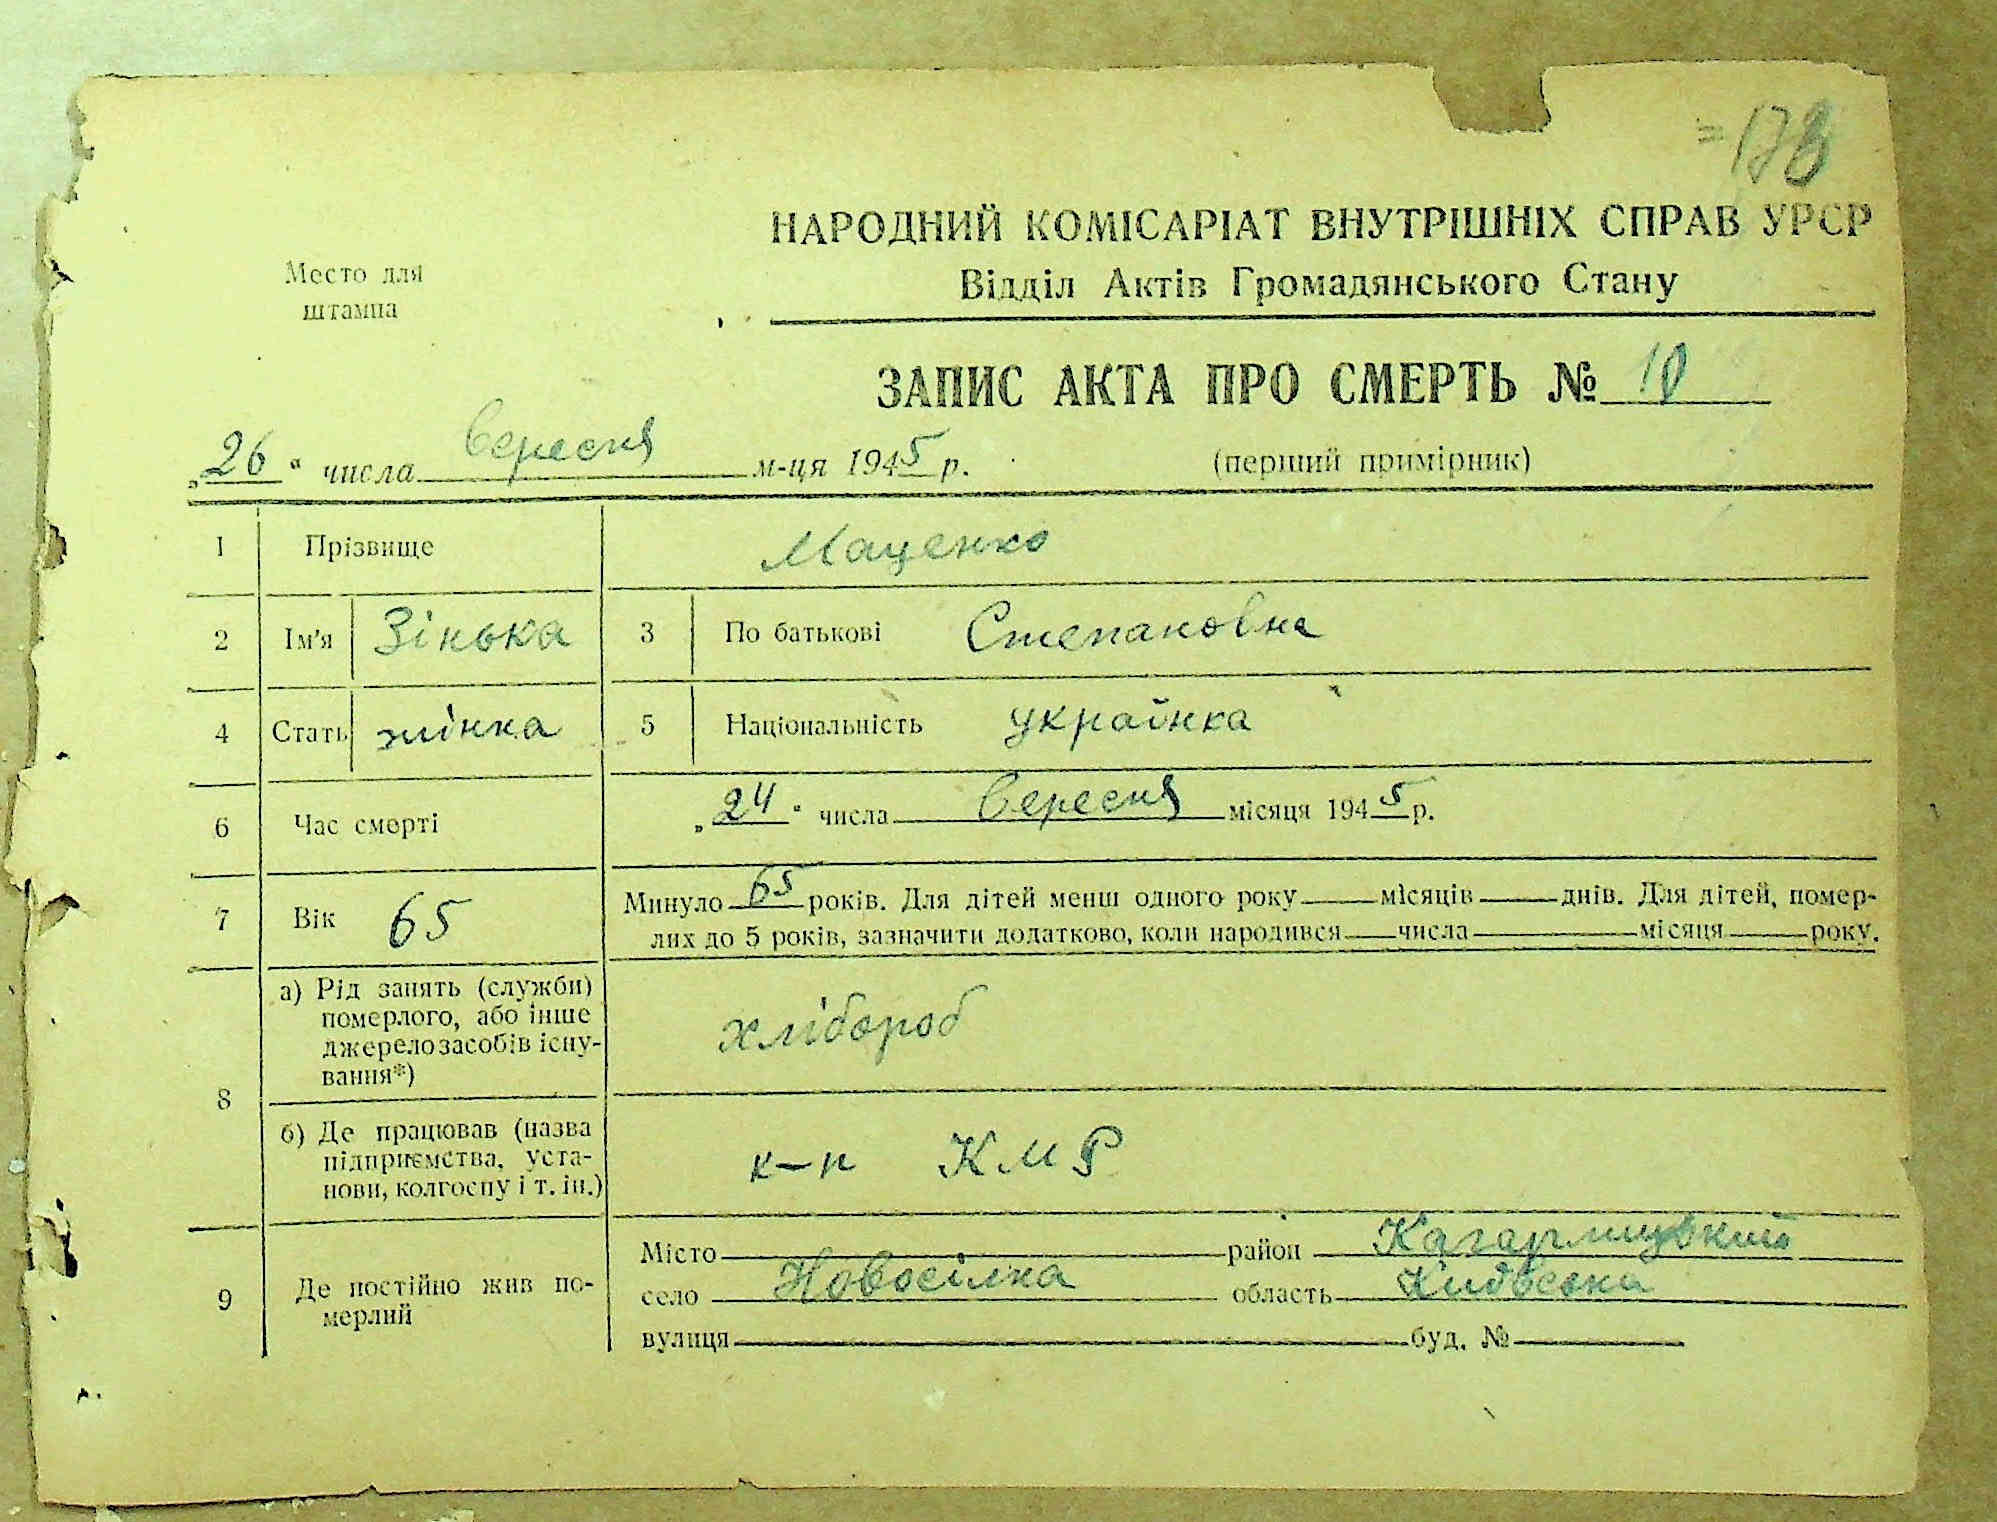 =178
НАРОДНИЙ КОМІСАРІАТ ВНУТРІШНІХ СПРАВ УРСР
Відділ Актів Громадянського Стану
Место для
штампа
ЗАПИС АКТА ПРО СМЕРТЬ № 10
„26“ числа вересня м-ця 1945 р.
(перший примірник)
1 Прізвище Маценко
2 Ім'я Зінька 3 По батькові Степановна
4 Стать жінка 5 Національність українка
6 Час смерті „24“ числа вересня місяця 1945 р.
7 Вік 65 Минуло 65 років. Для дітей менш одного року місяців днів. Для дітей, помер-
лих до 5 років, зазначити додатково, коли народився числа місяця року.
8 а) Рід занять (служби)
померлого, або інше
джерело засобів існу-
вання*)
хлібороб
б) Де працював (назва
підприємства, уста-
нови, колгоспу і т. ін.)
к-п КМР
9 Де постійно жив по-
мерлий
Місто район Кагарлицький
село Новосілка область Київська
вулиця буд. №